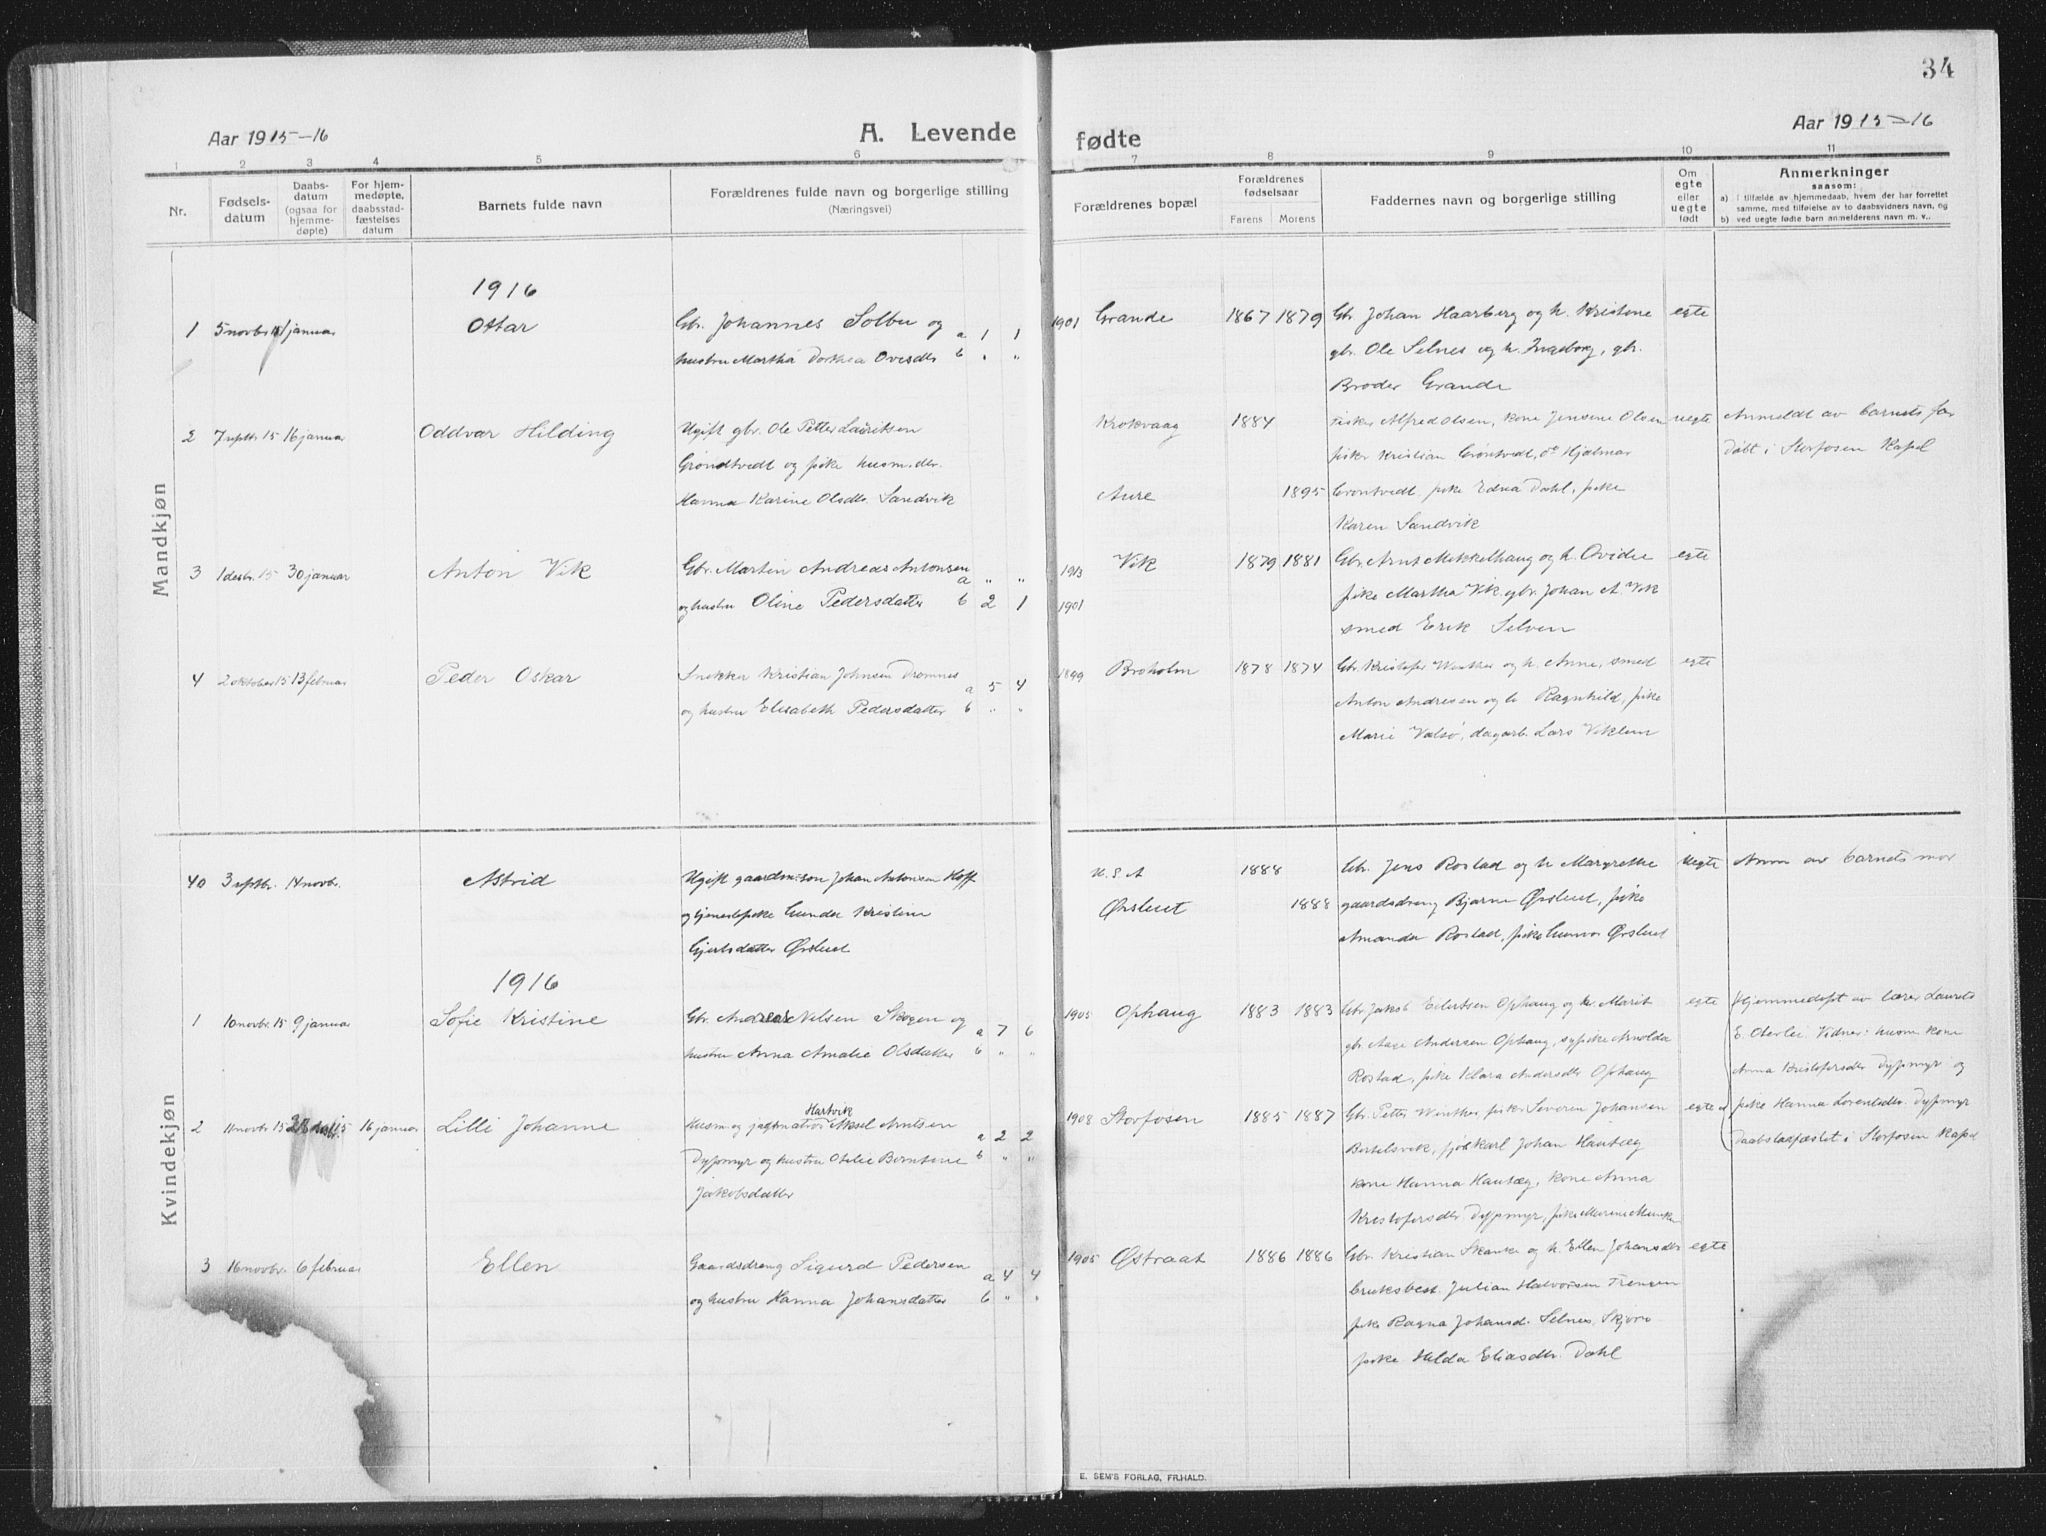 34
Aar 1915-16
A. Levende fødte
Aar 1915-16
1 2 3 4 5 6 7 8 9 10 11
Nr.
Fødsels-
datum
Daabs-
datum
(ogsaa for
hjemme-
døpte)
For hjem-
medøpte,
daabsstad-
fæstelses
datum
Barnets fulde navn
Forældrenes fulde navn og borgerlige stilling
(Næringsvei)
Forældrenes bopæl
Forældrenes
fødselsaar
Farens Morens
Faddernes navn og borgerlige stilling
Om
egte
eller
uegte
født
Anmerkninger
saasom:
a) i tilfælde av hjemmedaab, hvem der har forrettet
samme, med tilføielse av to daabsvidners navn, og
b) ved uegte fødte barn anmelderens navn m. v..
Mandkjøn
1916
1 5 novbr januar Ottar Gbr. Johannes Solbu og a 1 1 1901 Grande 1867 1879 Gb. Johan Haarberg og h. Kristine egte
hustru Martha Dorthea Ovesdtr b „ „ gbr. Ole Selnes og h. Ingeborg, gbr.
Broder Grande
2 7 septbr 15 16 januar Oddvar Hilding Ugift gbr. Ole Petter Lauritsen Krokvaag 1884 Fisker Alfred Olsen, kone Jensine Olsen uegte Anmeldt av barnets far
Grøndtvedt og pike husm.dtr. fisker Kristian Grøntvedt, do Hjalmar Døbt i Storfosen Kapel
Hanna Karine Olsdtr Sandvik Aure 1895 Grøntvedt pike Edna Dahl, pike
Karen Sandvik
3 1 desbr. 15 30 januar Anton Vik Gbr. Martin Andreas Antonsen a „ „ 1913 Vik 1879 1881 Gbr. Arnt Mikkelhaug og h. Ovidie egte
og hustru Oline Pedersdatter b 2 1 1901 pike Martha Vik. gbr. Johan A. Vik
smed Erik Selven
4 2 oktober 15 13 februar Peder Oskar Snekker Kristian Johnsen Dromnes a 5 4 1899 Broholm 1878 1874 Gbr. Kristofer Winther og h. Anne, smed egte
og hustru Elisabeth Pedersdatter b „ „ Anton Andresen og h Ragnhild, pike
Marie Valsø, dagarb. Lars Viklem
Kvindekjøn
40 3 septbr. 14 novbr. Astrid Ugift gaardm.søn Johan Antonsen Hoff U.S.A 1888 Gbr. Jens Rostad og h Margrethe uegte Anm av barnets mor
og tjenestepike Gunda Kristine Ørsluet 1888 gaardsdreng Bjarne Ørsluet, pike
Gjertsdatter Ørsluet Amanda Rostad, pike Gunvor Ørsluet
1916
1 10 novbr. 15 9 januar Sofie Kristine Gbr. Andreas Nilsen Skogen og a 7 6 1905 Ophaug 1883 1883 Gbr Jakob Eilertsen Ophaug og h. Marit egte Hjemmedøpt av lærer Laurits
hustru Anna Amalie Olsdatter b „ „ gbr. Aage Andersen Ophaug, sypike Arnolda E. Oterlei. Vidner: husm kone
Rostad, pike Klara Andersdtr Ophaug Anna Kristofersdtr Dypmyr og
2 11 novbr. 15 15 16 januar Lilli Johanne Husm og Hartvik Aksel Arntsen a 2 2 1908 Storfosen 1885 1887 Gbr. Petter Winther, fisker Severin Johansen egte pike Hanna Lorentsdtr. Dypmyr
Dypmyr og hustru Otelie Berntine b „ „ Bertelsvik, fjøskarl Johan Hautæg Daabstadfæstet i Storfosen Kapel
Jakobsdatter kone Hanna Hautæg, kone Anna
Kristofersdtr. Dypmyr, pike
3 16 novbr. 6 februar Ellen Gaardsdreng Sigurd Pedersen a 4 4 1905 Østraat 1886 1886 Gbr. Kristian Skanke og h. Ellen Johansdtr egte
og hustru Hanna Johansdatter b „ „ bruksbest. Julian Halvorsen
pike Ragna Johansd. Selnes, Skjøro
pike Hilda Eliasdtr. Dahl
E. SEM'S FORLAG, FR.HALD.